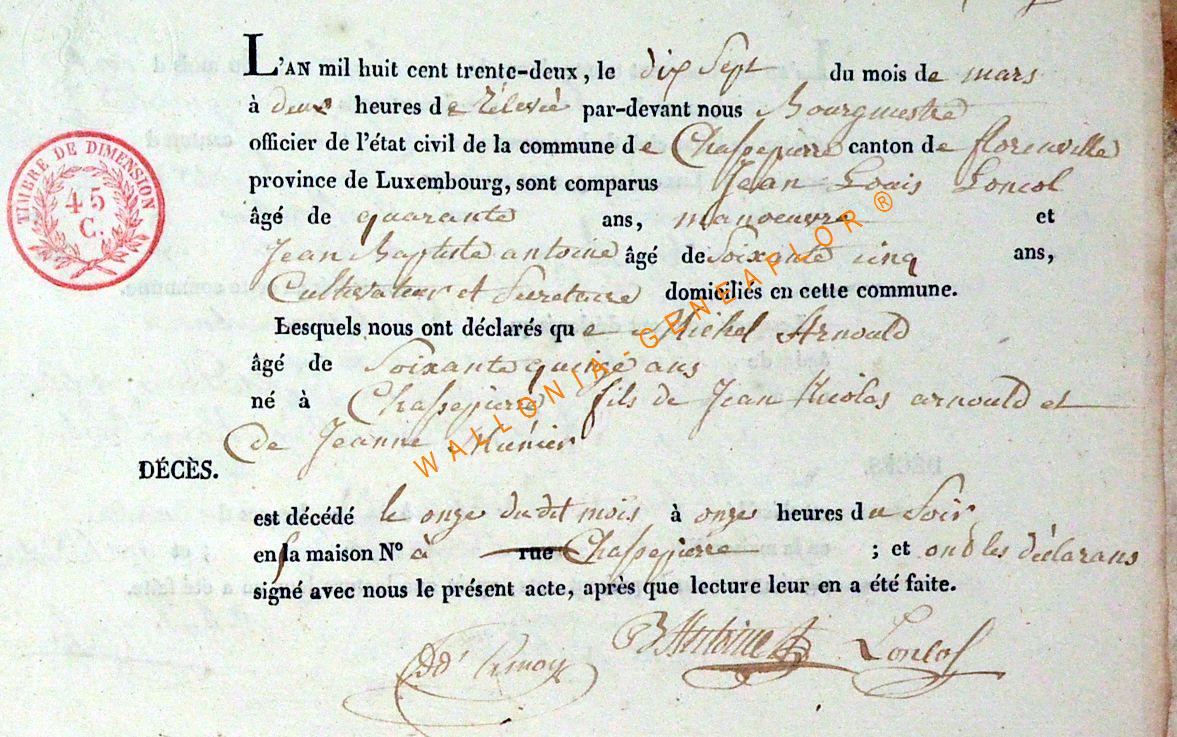 L'AN mil huit cent trente-deux, le dix Sept du mois de mars
à deux heures de rélevée par-devant nous Bourgmestre
officier de l'état civil de la commune de Chassepierre canton de florenville
province de Luxembourg, sont comparus Jean Louis Loncol
âgé de quarante ans, manoeuvre et
Jean Baptiste antoine âgé de Soixante cinq ans,
Cultivateur et Secretaire domiciliés en cette commune.
Lesquels nous ont déclarés que Michel Arnould
âgé de Soixante quinze ans
né à Chassepierre fils de Jean Nicolas arnould et
de Jeanne Munier
DÉCÈS.
est décédé le onze dudit mois à onze heures du Soir
en sa maison N° à rue Chassepierre ; et ont les déclarans
signé avec nous le présent acte, après que lecture leur en a été faite.
JB Antoine Loncol
TIMBRE DE DIMENSION
45
C.
WALLONIA-GENEAFLOR ®